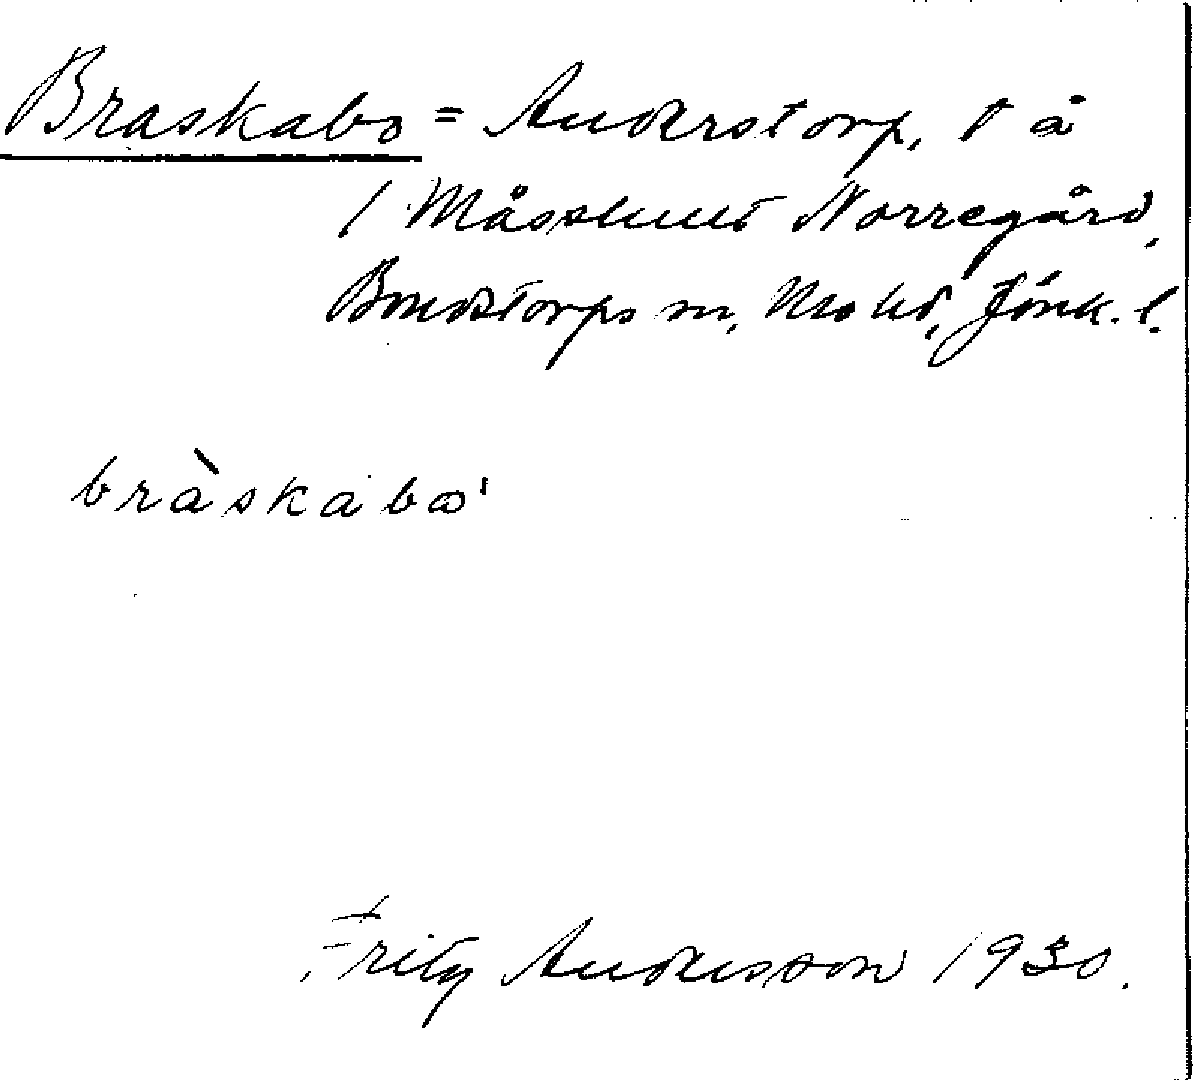 Braskabo = Anderstorp, t å
1 Måsslunt Norregård,
Bondstorps sn, Mo hd, Jönk. l.
bràskabo'
Fritz Andersson 1930.